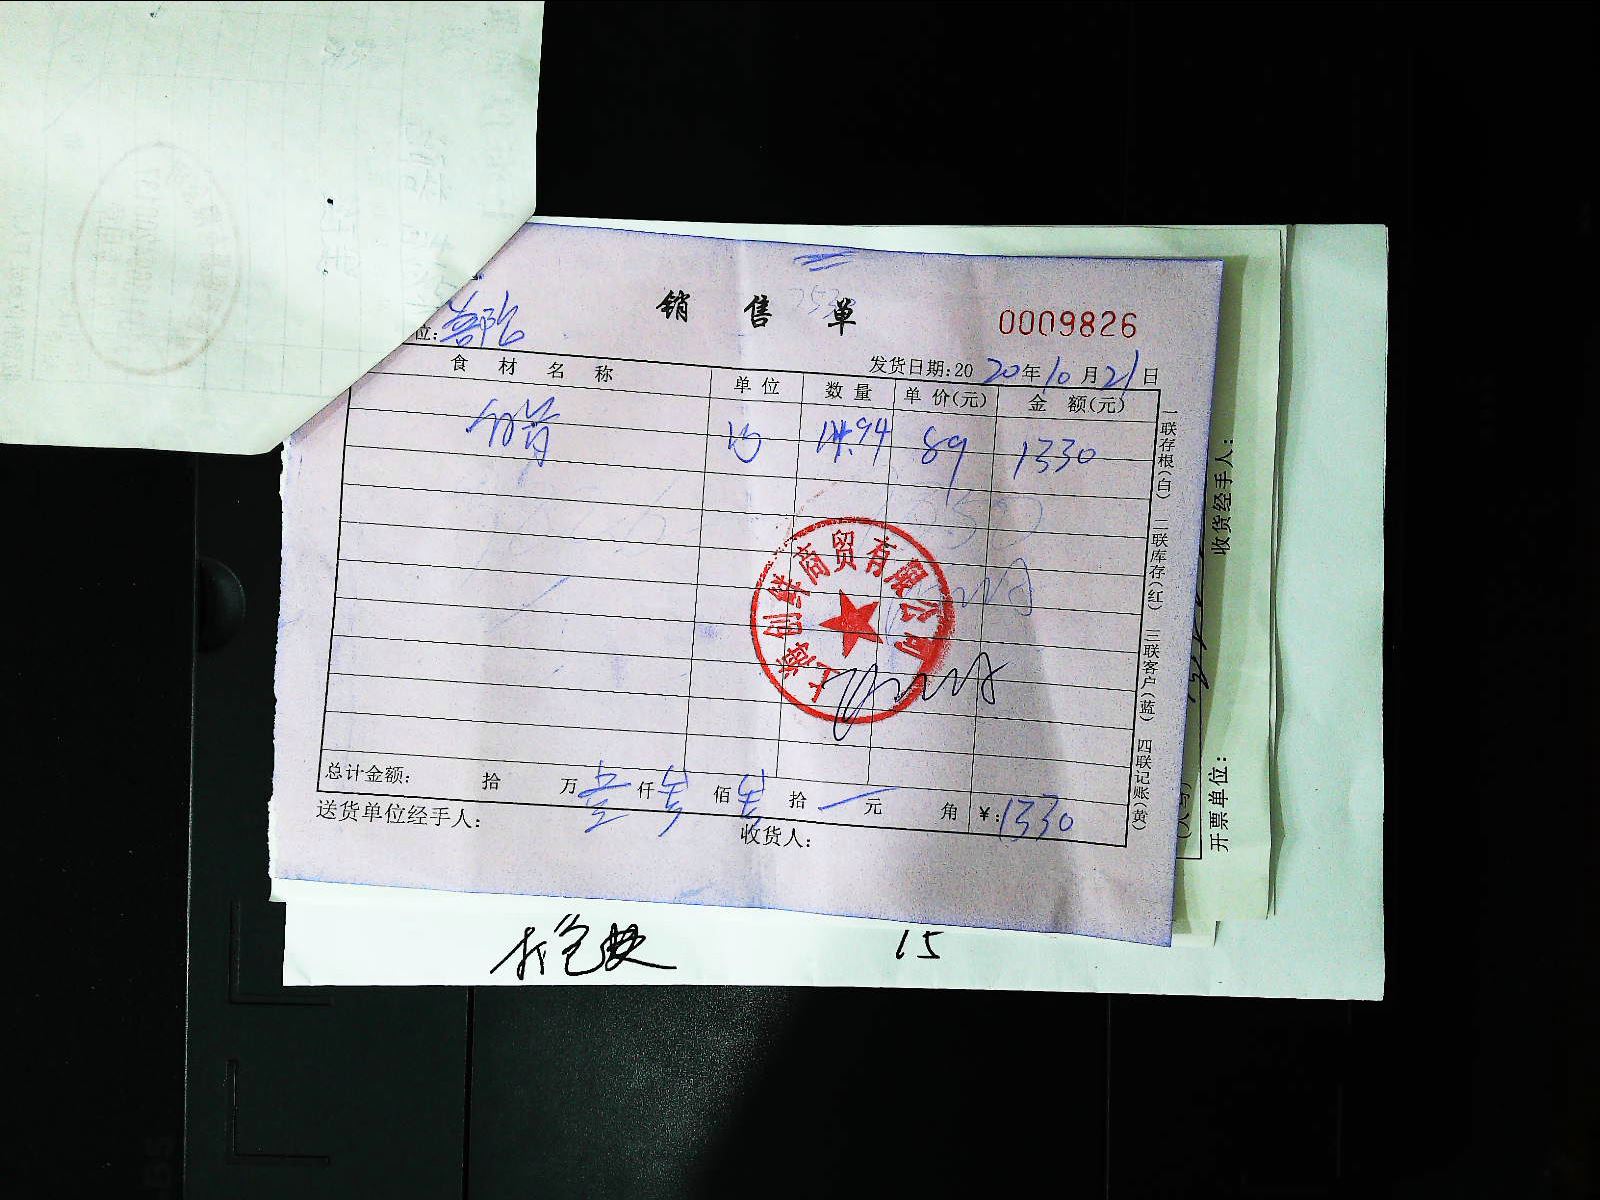 销售单
0009826
位:
发货日期:2020年10月21日
食材名称 单位 数量 单价(元) 金额(元)
14.94 89 1330
上海创鲜商贸有限公司
总计金额: 拾 万壹仟叁佰叁拾 元 角 ¥:1330
送货单位经手人: 收货人:
一联存根(白) 二联库存(红) 三联客户(蓝) 四联记账(黄)
收货经手人:
开票单位:
打包费 15